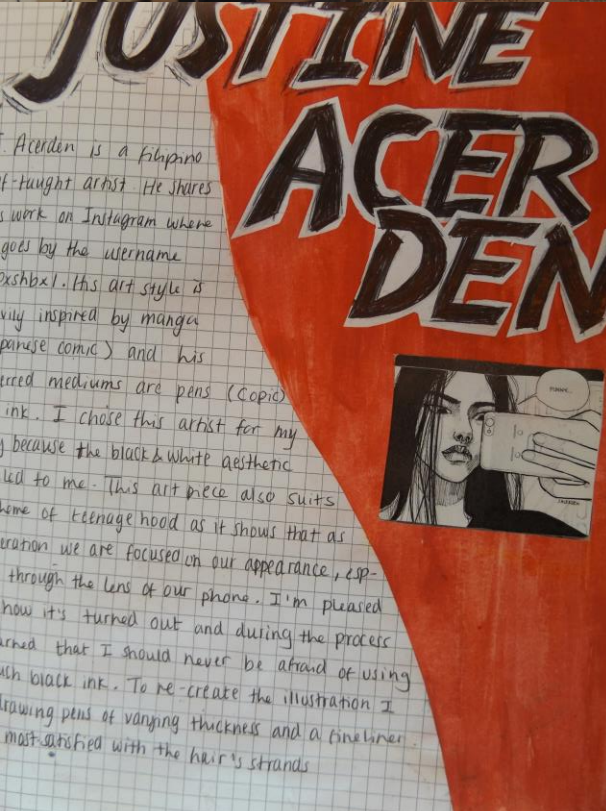 JUSTINE
ACER
DEN
J. Acerden is a Filipino
f-taught artist. He shares
s work on Instagram where
goes by the username
oxshbxl. His art style is
vily inspired by manga
panese comic) and his
erred mediums are pens (copic)
ink. I chose this artist for my
y because the black & white aesthetic
led to me. This art piece also suits
heme of teenage hood as it shows that as
eration we are focused on our appearance, esp-
through the lens of our phone. I'm pleased
how it's turned out and during the process
arned that I should never be afraid of using
uch black ink. To re-create the illustration I
drawing pens of varying thickness and a fineliner.
most satisfied with the hair's strands